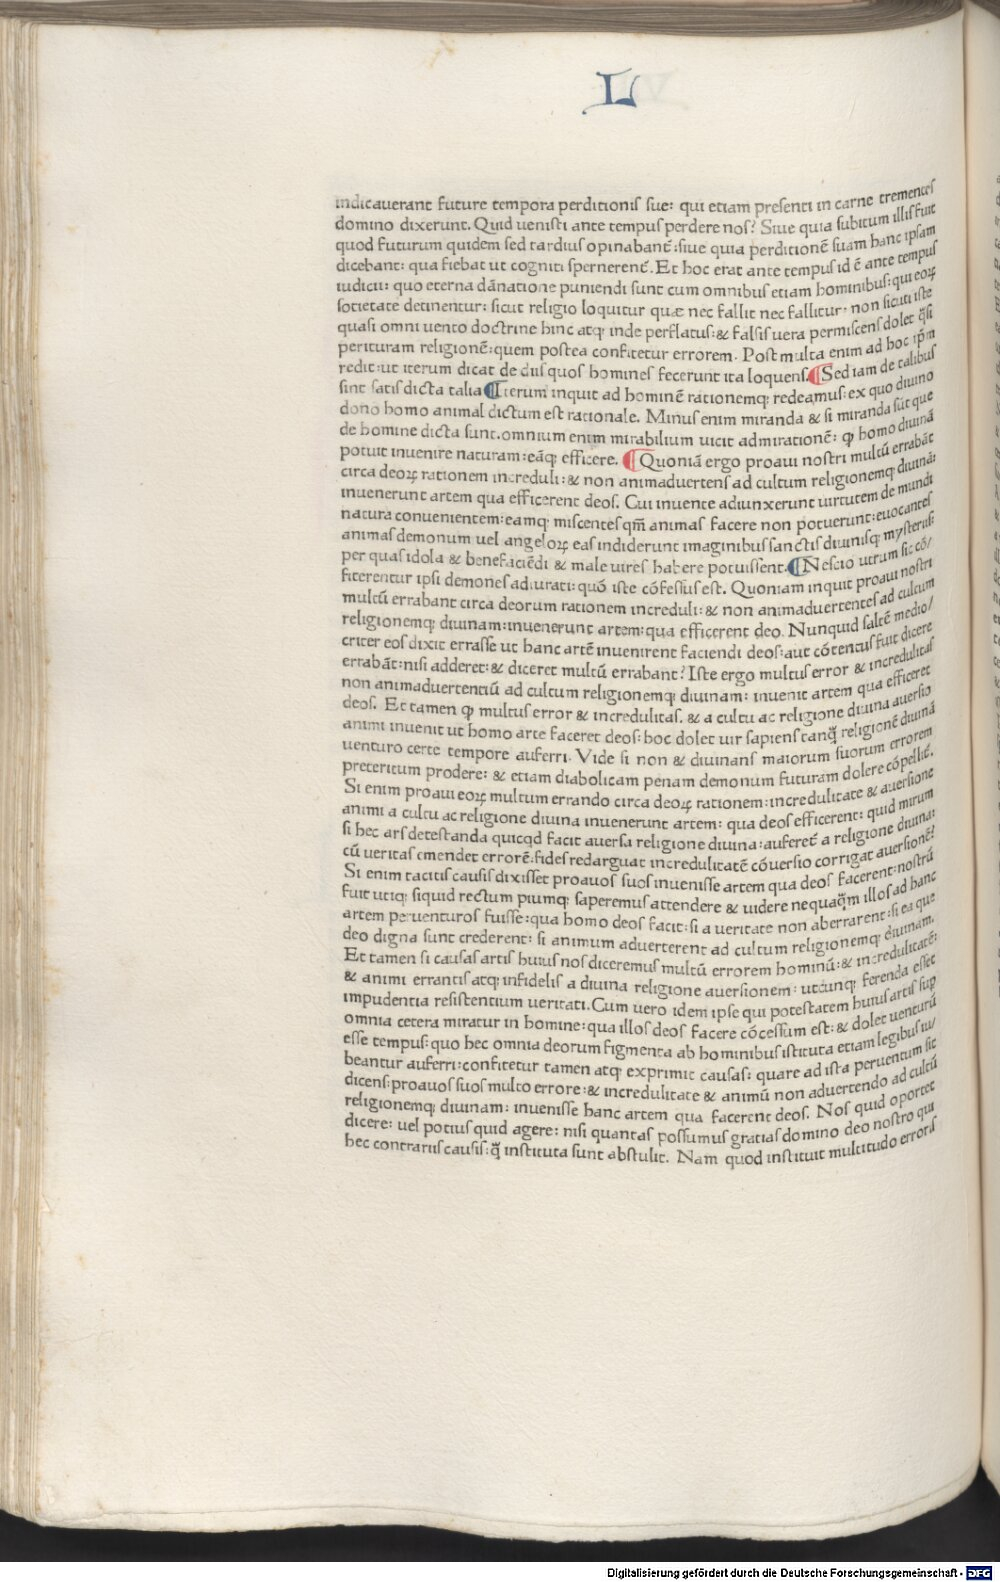 L
indicauerant future tempora perditionis sue: qui etiam presenti in carne trementes
domino dixerunt. Quid uenisti ante tempus perdere nos? Siue quia subitum illis fuit
quod futurum quidem sed tardius opinabant̃: siue quia perditionẽ suam hanc ipsam
dicebant: qua fiebat ut cogniti spernerent̃. Et hoc erat ante tempus id ẽ ante tempus
iudicii: quo eterna dãnatione puniendi sunt cum omnibus etiam hominibus: qui eoꝝ
societate detinentur: sicut religio loquitur quæ nec fallit nec fallitur, non sicuti iste
quasi omni uento doctrine hinc atq; inde perflatus: & falsis uera permiscens dolet q̃si
perituram religionẽ: quem postea confitetur errorem. Post multa enim ad hoc ip̃m
redit: ut iterum dicat de diis quos homines fecerunt ita loquens. ¶ Sed iam de talibus
sint satis dicta talia ¶ Iterum inquit ad hominẽ rationemq; redeamus: ex quo diuino
dono homo animal dictum est rationale. Minus enim miranda & si miranda sũt que
de homine dicta sunt. omnium enim mirabilium uicit admirationẽ: ꝙ homo diuinã
potuit inuenire naturam: eãq; efficere. ¶ Quoniã ergo proaui nostri multũ errabãt
circa deoꝝ rationem increduli: & non animaduertens ad cultum religionemq; diuinã:
inuenerunt artem qua efficerent deos. Cui inuente adiunxerunt uirtutem de mundi
natura conuenientem: eamq; miscentes qm̃ animas facere non potuerunt: euocantes
animas demonum uel angeloꝝ eas indiderunt imaginibus sanctis diuinisq; mysteriis:
per quas idola & benefaciẽdi & male uires habere potuissent. ¶ Nescio utrum sic cõ/
fiterentur ipsi demones adiurati: quõ iste cõfessus est. Quoniam inquit proaui nostri
multũ errabant circa deorum rationem increduli: & non animaduertentes ad cultum
religionemq; diuinam: inuenerunt artem: qua efficerent deo. Nunquid saltẽ medio/
criter eos dixit errasse ut hanc artẽ inuenirent faciendi deos: aut cõtentus fuit dicere
errabãt: nisi adderet: & diceret multũ errabant? Iste ergo multus error & incredulitas
non animaduertentiũ ad cultum religionemq; diuinam: inuenit artem qua efficeret
deos. Et tamen ꝙ multus error & incredulitas, & a cultu ac religione diuina auersio
animi inuenit ut homo arte faceret deos: hoc dolet uir sapiens tanq̃ religionẽ diuinã
uenturo certe tempore auferri. Vide si non & diuinans maiorum suorum errorem
preteritum prodere: & etiam diabolicam penam demonum futuram dolere cõpellit̃.
Si enim proaui eoꝝ multum errando circa deoꝝ rationem: incredulitate & auersione
animi a cultu ac religione diuina inuenerunt artem: qua deos efficerent: quid mirum
si hec ars detestanda quicqd facit auersa religione diuina: auferet̃ a religione diuina:
cũ ueritas emendet errorẽ: fides redarguat incredulitatẽ cõuersio corrigat auersionẽ?
Si enim tacitis causis dixisset proauos suos inuenisse artem qua deos facerent: nostrũ
fuit utiq; siquid rectum piumq; saperemus attendere & uidere nequaq̃m illos ad hanc
artem peruenturos fuisse: qua homo deos facit: si a ueritate non aberrarent: si ea que
deo digna sunt crederent: si animum aduerterent ad cultum religionemq; diuinam.
Et tamen si causas artis huius nos diceremus multũ errorem hominũ: & incredulitatẽ:
& animi errantis atq; infidelis a diuina religione auersionem: utcunq; ferenda esset
impudentia resistentium ueritati. Cum uero idem ipse qui potestatem huius artis sup
omnia cetera miratur in homine: qua illos deos facere cõcessum est: & dolet uenturũ
esse tempus: quo hec omnia deorum figmenta ab hominibus istituta etiam legibus iu/
beantur auferri: confitetur tamen atq; exprimit causas: quare ad ista peruentum sit
dicens: proauos suos multo errore: & incredulitate & animũ non aduertendo ad cultũ
religionemq; diuinam: inuenisse hanc artem qua facerent deos. Nos quid oportet
dicere: uel potius quid agere: nisi quantas possumus gratias domino deo nostro qui
hec contrariis causis: q̃ instituta sunt abstulit. Nam quod instituit multitudo erroris
Digitalisierung gefördert durch die Deutsche Forschungsgemeinschaft - DFG